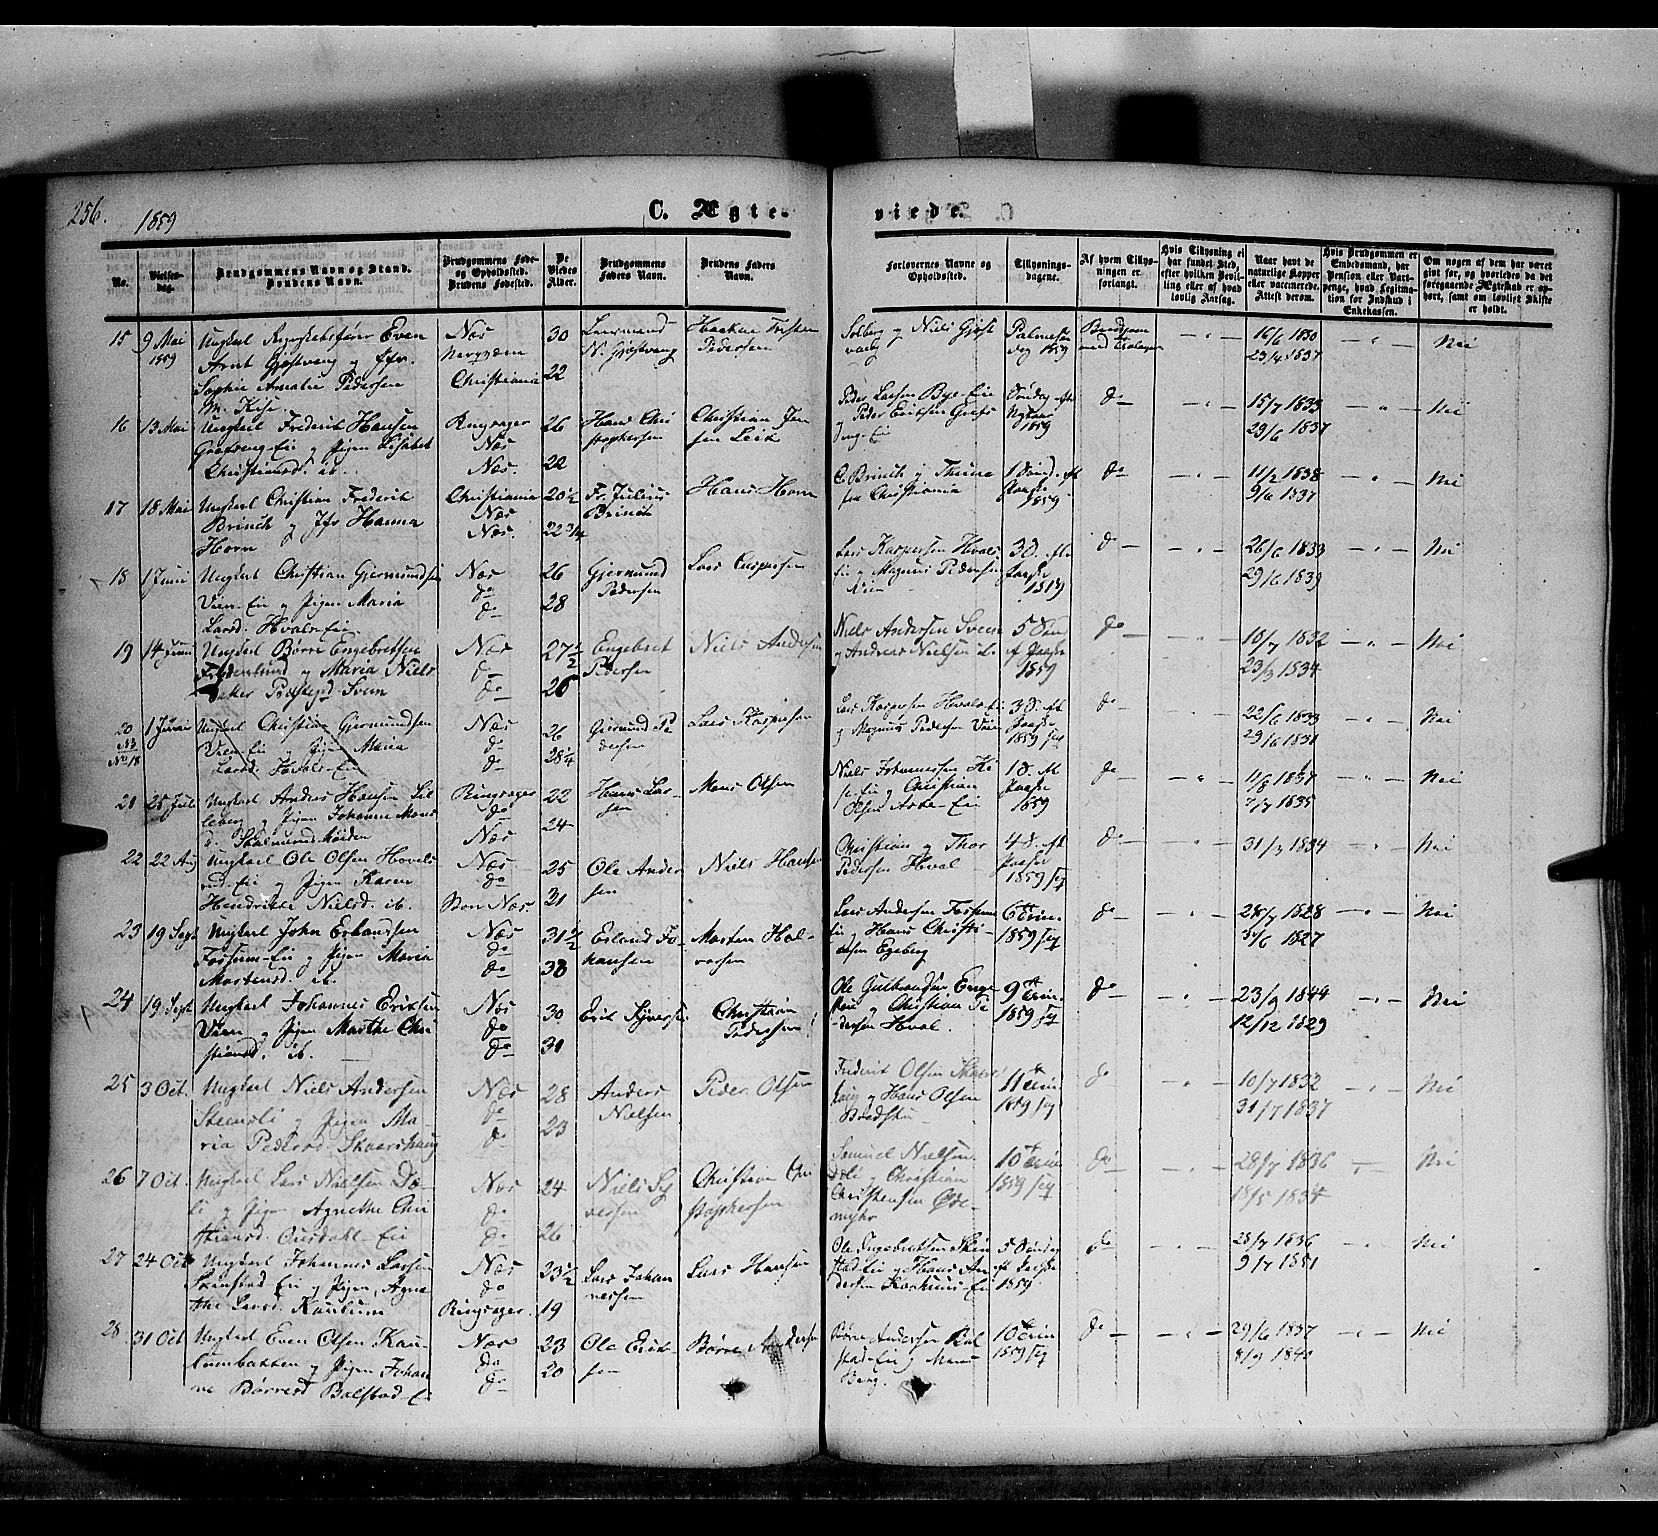 256.
1859
C. Ægte-
viede.
No.
Vielses-
dag.
Brudgommens Navn og Stand.
Brudens Navn.
Brudgommens Føde-
og Opholdssted.
Brudens Fødested.
De
Viedes
Alder.
Brudgommens
Faders Navn.
Brudens Faders
Navn.
Forlovernes Navne og
Opholdssted.
Tillysnings-
dagene.
Af hvem Tillys-
ningen er
forlangt.
Hvis Tillysning ei
har fundet Sted,
efter hvilken Bevil-
ling eller af hvad
lovlig Aarsag.
Naar havt de
naturlige Kopper
eller vaccinerede.
Attest derom.
Hvis Brudgommen er
Embedsmand, har
Pension eller Vart-
penge, hvad Legitima-
tion for Indskud i
Enkekassen.
Om nogen af dem har været
gift før, og hvorledes da det
foregaaende Ægteskab er op-
hørt, samt om lovligt Skifte
er holdt.
15 9 Mai 1859
Ungkarl Regnskabsfører Even
Arnt Gjøstvang og Jfr.
Sophie Amalie Pedersen
M. Kise.
Næs
Christiania
30
22
N. Gjøstvang
Pedersen
Solberg og Niels Gjøst
vang
Palmesøn
dag 1859
Brudgom
16/6 1830
23/4 1837
Nei
16 13 Mai
Ungkarl Frederik Hansen
og Pigen Lisabet
Christiansd. ib.
Ringsager
Næs
Næs.
26
22
Hans Chri
stophersen
Christian Jen
sen
Peder Larsen Bye-Eie
og Peder Eriksen
Søndag eft.
Nytaar
1859
do
15/7 1833
29/6 1837
Nei
17 18 Mai
Ungkarl Christian Frederik
Brinch og Jfr Hanna
Horn
Christiania
Næs
Næs.
20½
22 3/4
Fr. Julius
Brinch
Hans Horn
C. Brinch og Thune
fra Christiania
1 Sønd. eft
Paaske
1859.
do
11/2 1838
9/6 1837
Nei
18 1 Juni
Ungkarl Christian Gjermundsen
Vien-Eie og Pigen Maria
Larsd. Hvals-Eie.
Næs
do
do
26
28
Gjermund
Pedersen
Lars Caspersen
Lars Kaspersen Hvals
Eie og Magnus Pedersen
Vien
3 S. eft.
Paaske
1859
do
26/6 1833
29/6 1839
Nei
19 14 Juni
Ungkarl Børre Engebretsen
og Maria Niels
datter Præstegd. Sveen
Næs
do
do
27½
26
Engebret
Pedersen
Niels Andersen
Niels Andersen Sveen
og Andreas Nielsen
5 Søn
ef Paaske
1859
do
18/7 1832
23/3 1834
Nei
20 1 Juni
NB
No 18
Ungkarl Christian Gjermundsen
Vien-Eie og Pigen Maria
Larsd. Hvals-Eie
Næs
do
do
26
28¼
Gjermund Pe
dersen
Lars Kaspersen
Lars Kaspersen Hvals-Ei
og Magnus Pedersen Vien
3 S. eft
Paaske
1859
do
22/6 1833
29/6 1831
Nei
21 25 Juli
Ungkarl Anders Hansen Lil
leberg og Pigen Johanne Mons
d.
Ringsager
do
Næs
22
24
Hans Lar-
sen
Mons Olsen
Niels Johannessen Ki
se-Eie og Christian
Olsen
1 S. eft
Paaske
1859
do
11/8 1837
7/7 1835
Nei
22 22 Aug
Ungkarl Ole Olsen Hovels
rud-Eie og Pigen Karen
Hendrikke Nielsd. ib.
Næs
do
25
31
Ole Ander
sen
Niels Hansen
Christian og Thor
Pedersen Hval
4 S. eft
Paaske
1859
do
31/3 1834
Nei
23 19 Sept
Ungkarl John Erlandsen
Fossum-Eie og Pigen Maria
Mortensd. ib.
Næs
do
do
31½
38
Erland Jo-
hansen
Morten Hal-
vorsen
Lars Andersen Fossum
Eie og Hans Christi-
ansen Egeberg
6te Trin.
1859
do
28/7 1828
1827
Nei
24 19 Sept
Ungkarl Johannes Eriksen
Vien og Pigen Marthe Chri
stiansd. ib.
Næs
do
do
30
31
Erik Syversen
Christian
Pedersen
Ole Gulbrandsen Enge
lien og Christian Pe
dersen Hval.
9te Trin.
1859
do
23/9 1844
12/12 1829
Nei
25 3 Oct.
Ungkarl Niels Andersen
Stensli og Pigen Ma-
ria Pedersd. Skaarshaug
Næs
do
do
28
23
Anders
Nielsen
Peder Olsen
Frederik Olsen Skaars
haug og Hans Olsen
Bredstu
11te Trin
1859
do
10/7 1832
31/7 1837
Nei
26 7 Oct.
Ungkarl Lars Nielsen Dø-
li og Pigen Agnethe Chri
stiansd. Eie
Næs
do
do
24
26
Niels Sy
versen
Christian Chri
stophersen
Samuel Nielsen
Døli og Christian
Christensen Øde-
myhr
10te Trin
1859
do
28/7 1836
18/5 1834
Nei
27 24 Oct
Ungkarl Johannes Larsen
Skinstad Eie og Pigen Agne
the Larsd. Kaulum
Næs
do
Ringsager.
23½
19
Lars Johan
nessen
Lars Hansen
Ole Ingebretsen Skin
stad-Eie og Hans An
dersen
5 Søndag
eft Paaske
1859.
do
28/7 1836
9/7 1851
Nei
28 31 Oct
Ungkarl Even Olsen Kau-
lumbakken og Pigen Johan
ne Børresd Balstad-Ei
Næs
do
do
23
20
Ole Erik-
sen
Børre Andersen
Børre Andersen Bal
stad-Eie og
Berg.
10te Trin
1859
do
29/6 1837
8/9 1840
Nei